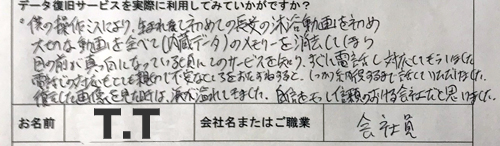 データ復旧サービスを実際に利用してみていかがですか？
僕の操作ミスにより、生まれ来て初めての長女の沐浴動画を初め
大切な動画を全べて(内蔵データ)のメモリーを消去してしまい
目の前が真っ白になっている時にこのサービスを知り、すぐに電話し対応してもらいました。
電話での対応もとても親切で不安なことをおたずねすると、しっかり納得するまで話していただけました。
復元した画像を見た時は、涙が溢れてきました。自信を持って信頼のおける会社だと思いました。
お名前 T.T 会社名またはご職業 会社員